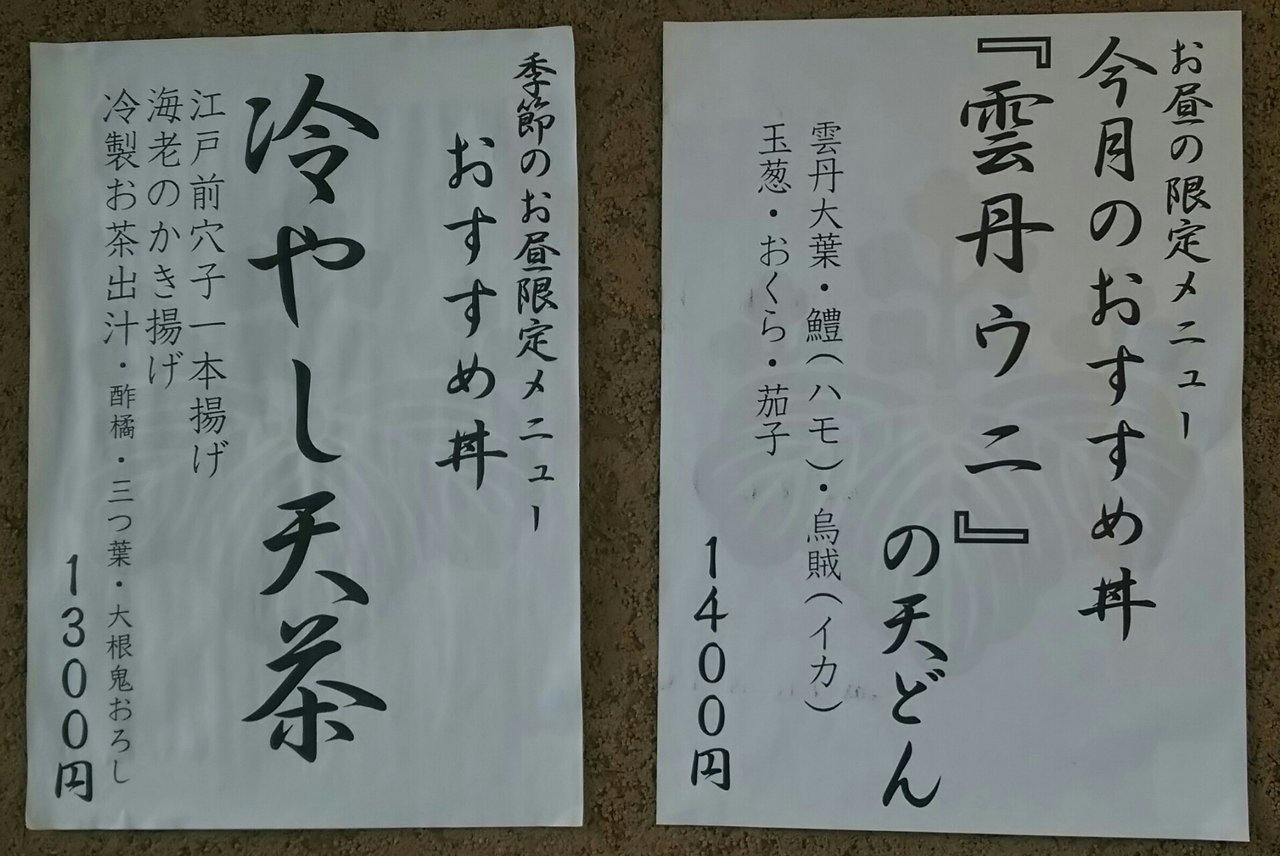 お昼の限定メニュー
今月のおすすめ丼
『雲丹ウニ』
の天どん
雲丹大葉・鱧(ハモ)・烏賊(イカ)
玉葱・おくら・茄子
1400円
季節のお昼限定メニュー
おすすめ丼
冷やし天茶
江戸前穴子一本揚げ
海老のかき揚げ
冷製お茶出汁・酢橘・三つ葉・大根鬼おろし
1300円